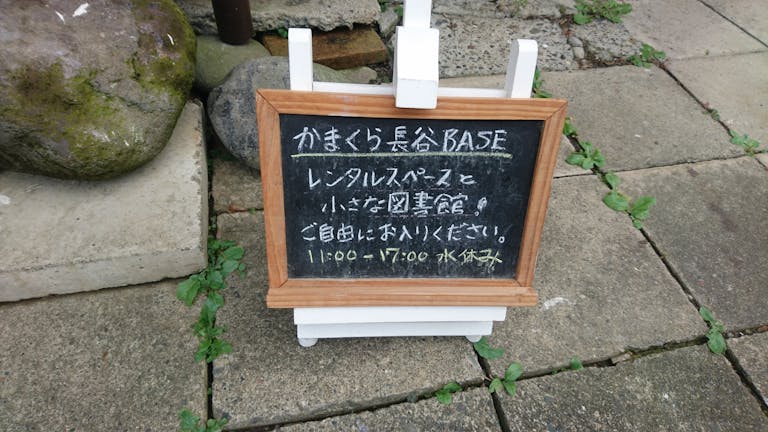 かまくら長谷BASE
レンタルスペースと
小さな図書館!
ご自由にお入りください。
11:00-17:00 水休み